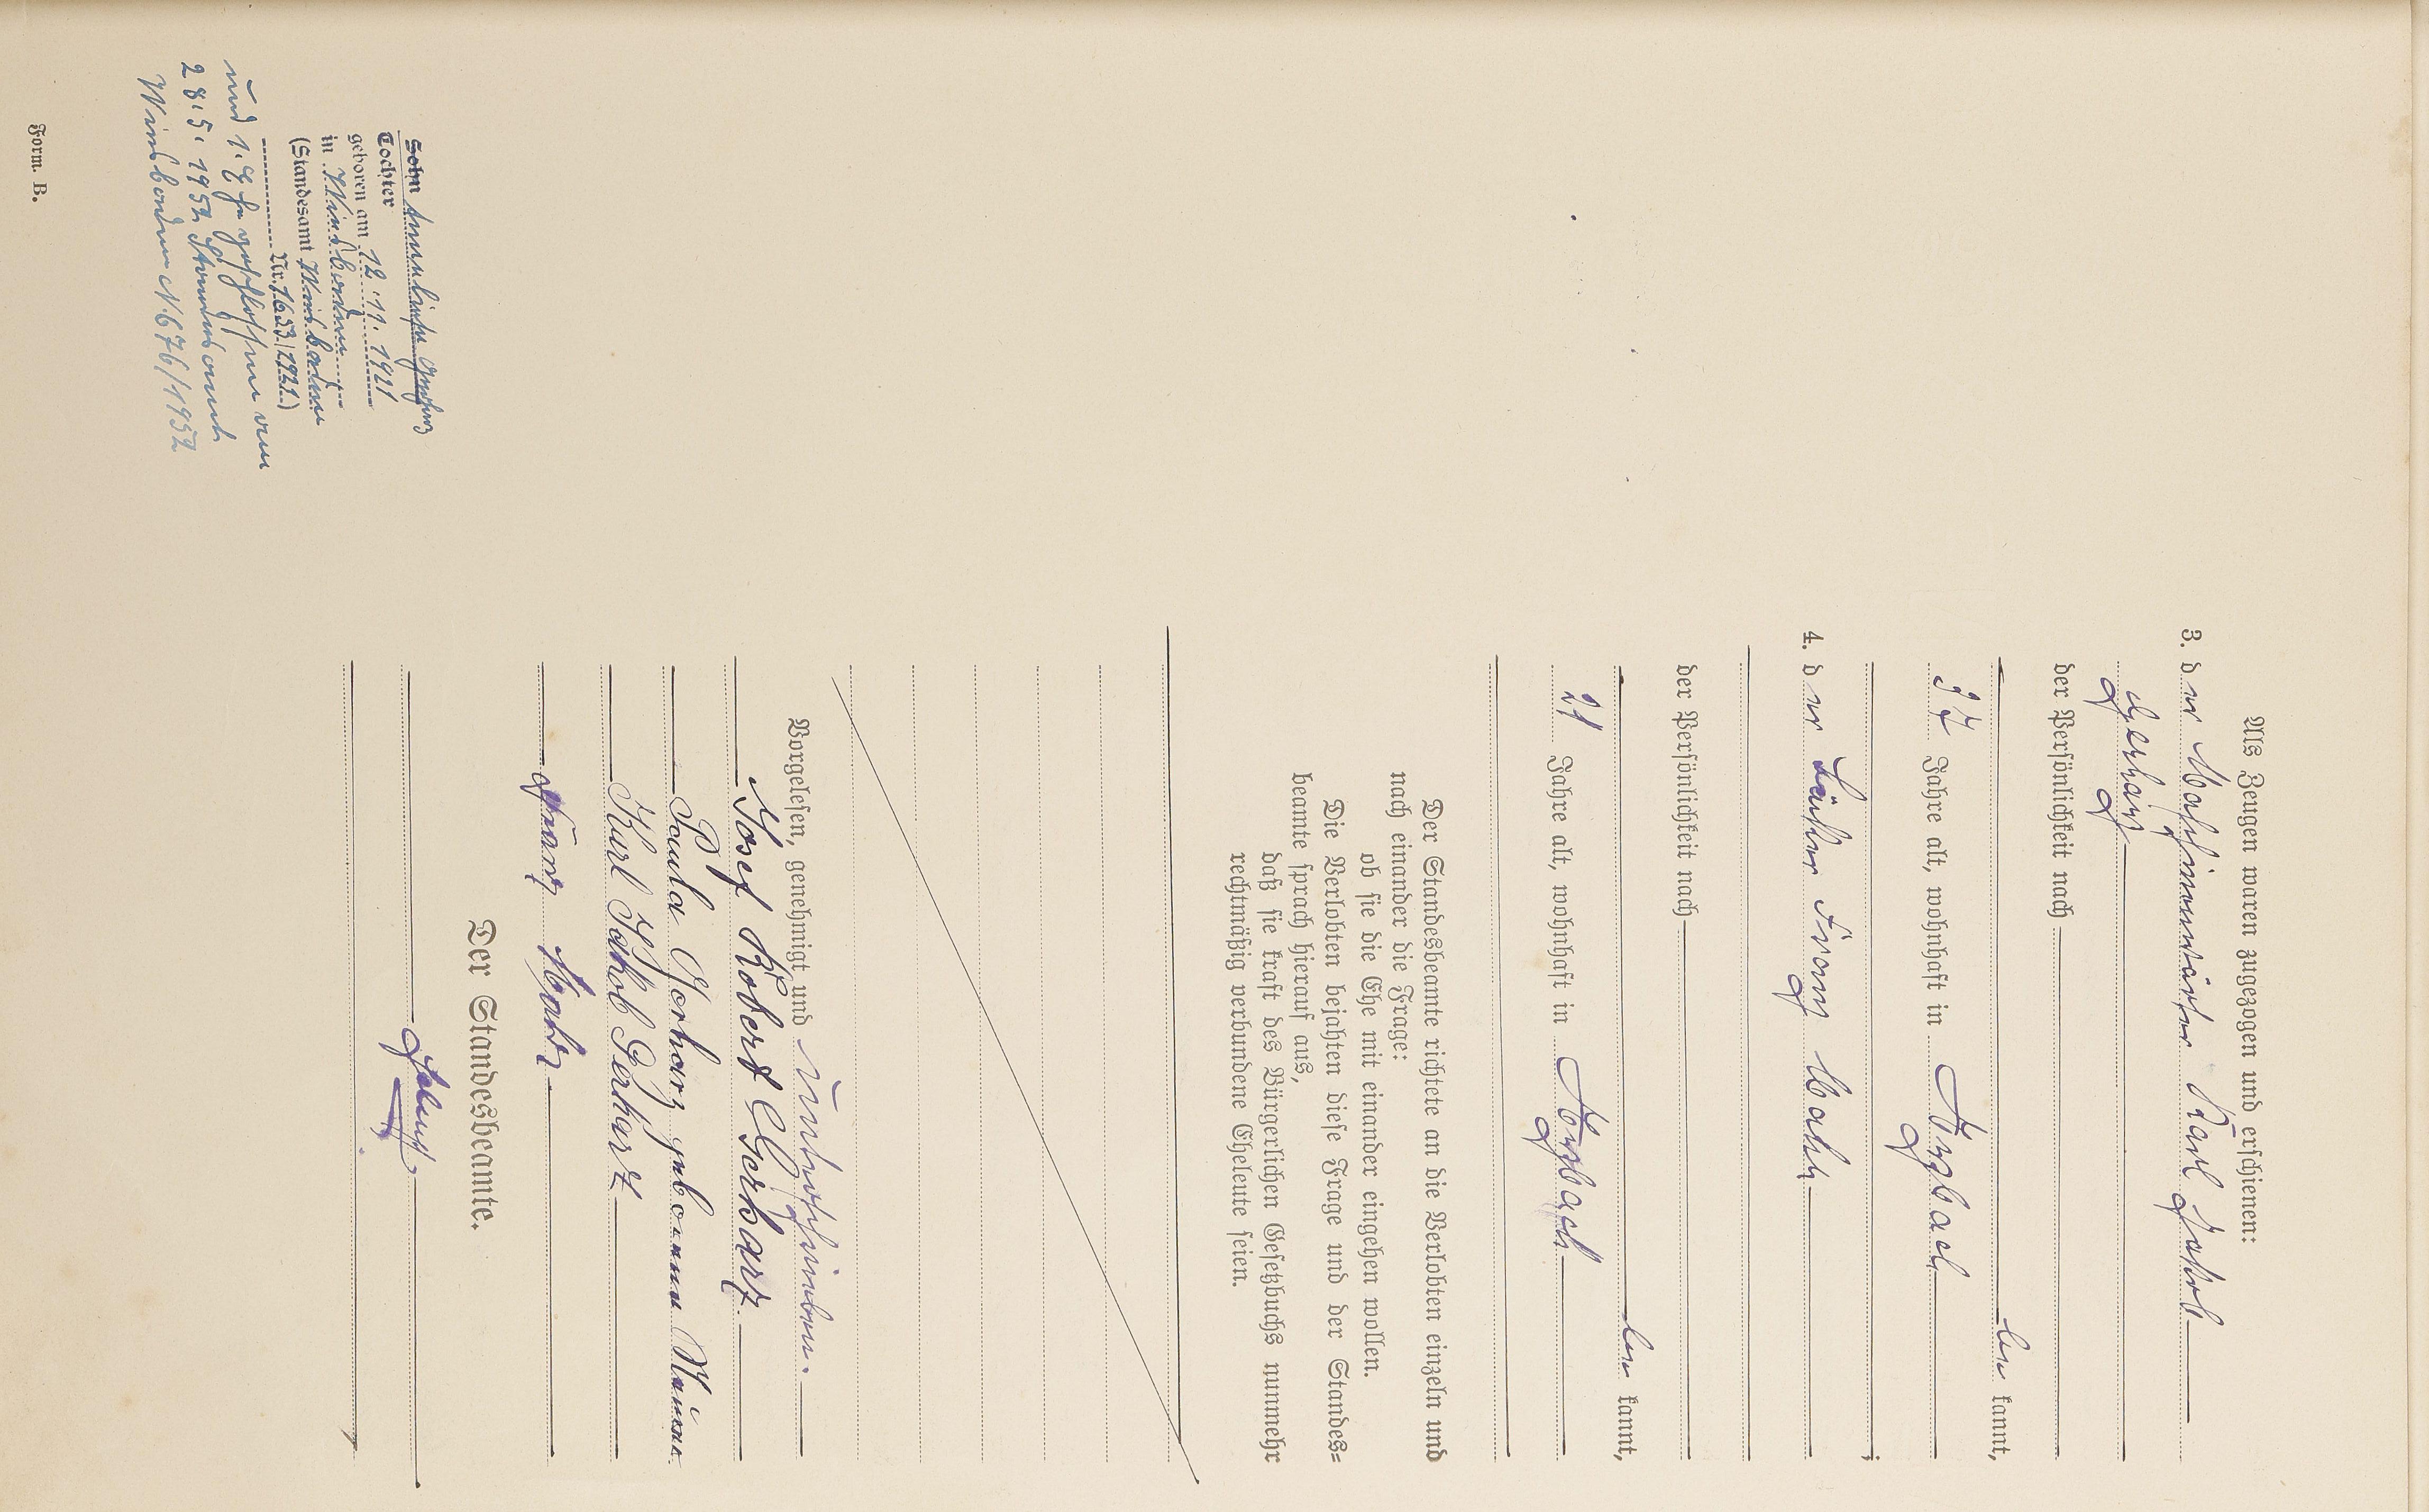 Als Zeugen waren zugezogen und erschienen:
3. der Karl Jakob
Gerharz
der Persönlichkeit nach
kannt,
37 Jahre alt, wohnhaft in Arzbach
4. der Franz
der Persönlichkeit nach
kannt,
21 Jahre alt, wohnhaft in Arzbach
Der Standesbeamte richtete an die Verlobten einzeln und
nach einander die Frage:
ob sie die Ehe mit einander eingehen wollen.
Die Verlobten bejahten diese Frage und der Standes=
beamte sprach hierauf aus,
daß sie kraft des Bürgerlichen Gesetzbuchs nunmehr
rechtmäßig verbundene Eheleute seien.
Vorgelesen, genehmigt und unterschrieben.
Josef Robert Gerharz
Paula Gerharz geborene
Karl Jakob Gerharz
Franz
Der Standesbeamte.
Sohn Gerharz
Tochter
geboren am 12.11.1921
in Wiesbaden
(Standesamt Wiesbaden
Nr. 1653/1921)
und 1. Ehe geschlossen am
28.5.1952 Standesamt
Wiesbaden N. 676/1952
Form. B.